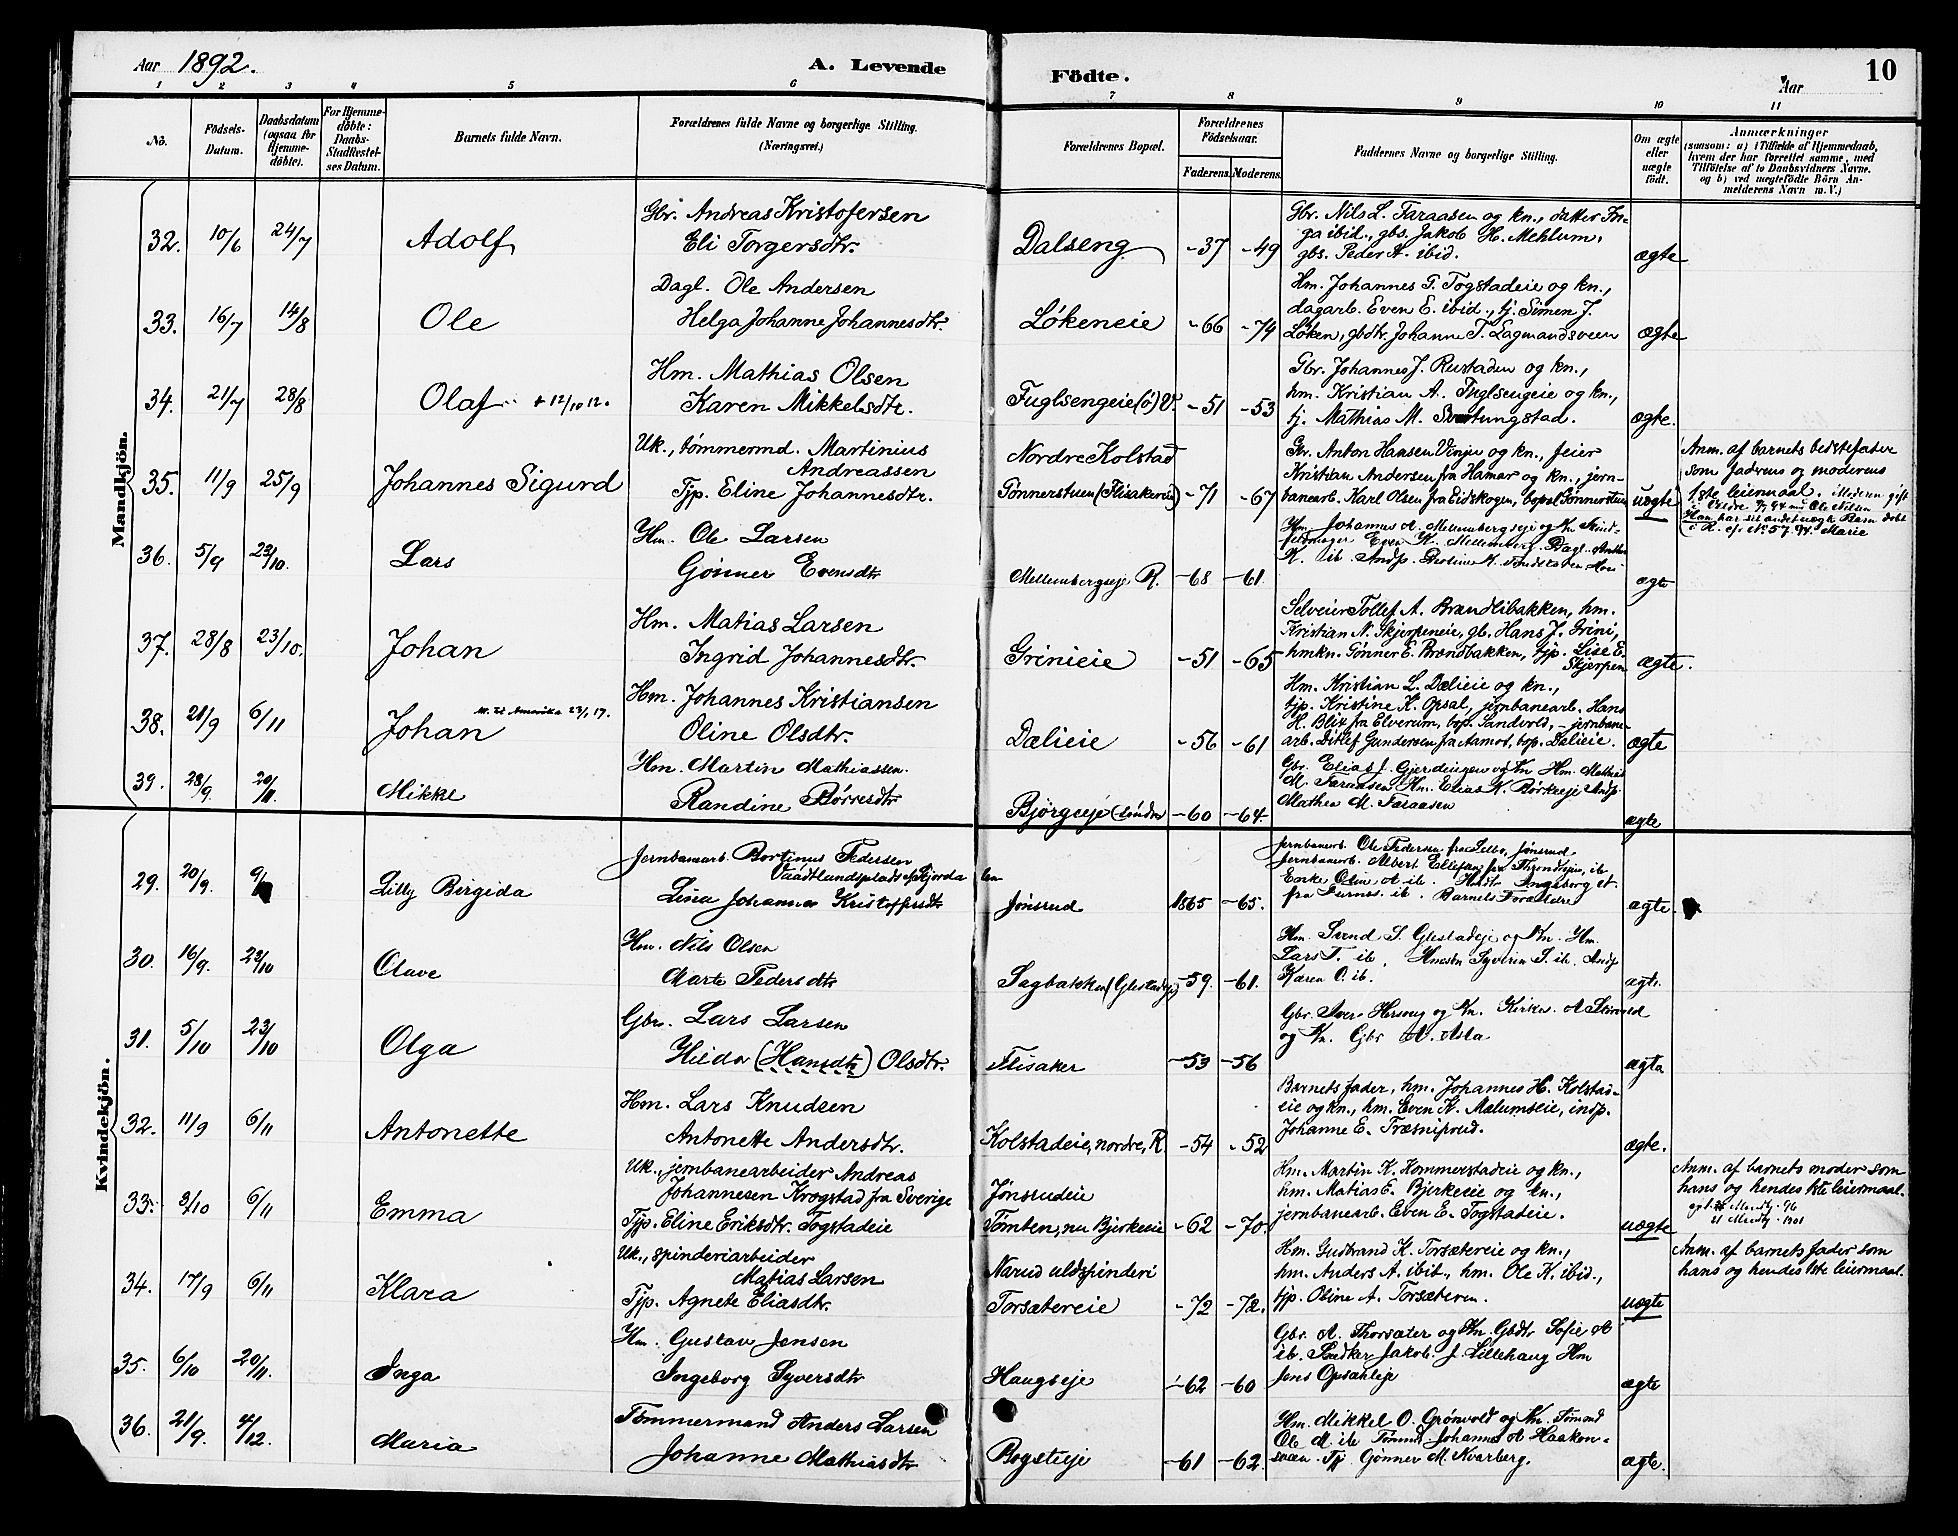 Aar 1892.
A. Levende
Födte.
Aar
10
1 2 3 4 5 6 7 8 9 10 11
No.
Födsels-
Datum.
Daabsdatum
(ogsaa for
Hjemme-
döbte).
For Hjemme-
döbte:
Daabs-
Stadfæstel-
ses Datum.
Barnets fulde Navn.
Forældrenes fulde Navne og borgerlige Stilling.
(Næringsvei.)
Forældrenes Bopæl.
Forældrenes
Födselsaar.
Faderens. Moderens.
Faddernes Navne og borgerlige Stilling.
Om ægte
eller
uægte
født.
Anmærkninger
(saasom: a) i Tilfælde af Hjemmedaab,
hvem der har forrettet samme, med
Tilföielse af to Daabsvidners Navne,
og b) ved uægtefödte Börn An-
melderens Navn m. V.)
Mandkjön.
32. 10/6 24/7 Adolf
Gbr. Andreas Kristofersen
Eli Torgersdtr.
Dalseng -37 -49
Gbr. Nils L. Faraasen og kn., datter In-
ga ibid., gbs. Jakob H. Mehlum,
gbs. Peder A. ibid.
ægte
33. 16/7 14/8 Ole
Dagl. Ole Andersen
Helga Johanne Johannesdtr.
Løkeneie -66 -74
Hm. Johannes T. Togstadeie og kn.,
dagarb. Even E. ibid., tj. Simen J.
Løken, gbdtr. Johanne T. Lagmandsveen
ægte
34. 21/7 28/8 Olaf + 12/10 12.
Hm. Mathias Olsen
Karen Mikkelsdtr.
Fuglsengeie (ö) V. -51 -53
Gbr. Johannes J. Rustaden og kn.,
hm. Kristian A. Fuglsengeie og kn.,
tj. Mathias M. Svartungstad.
ægte.
35. 11/9 25/9 Johannes Sigurd
Uk., tømmermd. Martinius
Andreassen
Tjp. Eline Johannesdtr.
Nordre Kolstad
Tønnerstuen (Flisakereie) -71 -67
Gbr. Anton Hansen Vinju og kn., feier
Kristian Andersen fra Hamar og kn., jern-
banearb. Karl Olsen fra Eidskogen, bopæl Tønnerstuen
uægte
Anm. af barnets bedstefader
som faderens og moderens
1ste leiermaal. Moderen gift
i Veldre 94 med Ole Nilsen
Han har sit andet uægte Barn døbt
i R. cfr. No 57 94. Marie
36. 5/9 23/10. Lars
Hm. Ole Larsen
Gønner Evensdtr
Mellembergseje R. -68 -61
Hm. Johannes A. Mellembergseje og Kn
Even K. Mellemberg. Dagl. Anton
K. ib. Indp.
ægte
37. 28/8 23/10. Johan
Hm. Matias Larsen
Ingrid Johannesdtr.
Grinieie -51 -65
Selveier Tollef A. Brændlibakken, hm.
Kristian N. Skjerpeneie, gb. Hans J. Grini,
hmkn. Gønner E. Brændbakken, tjp. Lise E.
Skjerpen
ægte.
38. 21/9 6/11 Johan
Ut. til Amerika 23/1 17.
Hm. Johannes Kristiansen
Oline Olsdtr.
Dælieie -56 -61
Hm. Kristian L. Dælieie og kn.,
tjp. Kristine K. Opsal, jernbanearb. Hans
H. Blix fra Elverum, bop. Sandvold, - jernbane-
arb. Ditlef Gundersen fra Aamot, bop. Dælieie.
ægte
39. 28/9. 20/11. Mikkel
Hm. Martin Mathiassen.
Randine Børresdtr
Bjørgeeje (søndre -60 -64.
Gbr. Elias J. Gjerdingen og Kn Hm. Mathias
M. Faraasen Hm. Elias K. Børkeeje Indp.
Mathea M. Faraasen
ægte
Kvindekjön.
29. 20/9. 9/ Lilly Birgida
Jernbanearb. Bortinus Pedersen
Vaadtlandsplads af Fjordalen
Lina Johannes Kristoffersdtr
Jønsrud 1865 -65.
Jernbanearb. Ole Pedersen fra Selbo, Jønsrud
Jernbanearb. Albert Ellefsen fra Throndhjem, ib
Enke Oline A ib. Ingeborg H.
fra Furnes. ib. Barnets Forældre
ægte.
30. 16/9. 23/10 Olave
Hm. Nils Olsen
Marte Pedersdtr
Sagbakken (Glestadeje) -59. -61.
Hm. Svend S. Glestadeje og Kn. Hm.
Lars T. ib. Hmsøn Syverin S. ib. Indp
Karen O. ib.
ægte.
31. 5/10 23/10 Olga
Gbr. Lars Larsen
Hilda (Hansdtr) Olsdtr.
Flisaker -53 -56
Gbr. Iver Hersoug og Kn. Kirkes. A Skirvold
og Kn. Gbr A. Asla
ægte
32. 11/9 6/11 Antonette
Hm. Lars Knudsen
Antonette Andersdtr.
Kolstadeie, nordre, R. -54 -52
Barnets fader, hm. Johannes H. Kolstad-
eie og kn., hm. Even K. Mælumseie, indp.
Johanne E. Træsniprud.
ægte.
33. 3/10 6/11 Emma
Uk., jernbanearbeider Andreas
Johannesen Krogstad fra Sverige
Tjp. Eline Eriksdtr. Togstadeie
Jønsrudeie
Tomten, nu Bjerkeeie -62 -70.
Hm. Martin K. Hommerstadeie og kn.,
hm. Matias E. Bjerkeeie og kn.,
jernbanearb. Even E. Togstadeie.
uægte
Anm. af barnets moder som
hans og hendes 1ste leiermaal.
34. 17/9 6/11 Klara
Uk., spinderiarbeider
Matias Larsen
Tjp. Agnete Eliasdtr.
Narud uldspinderi
Torsætereie -72 -72.
Hm. Gudbrand K. Torsætereie og kn.,
hm. Anders A. ibid., hm. Ole K. ibid.,
tjp. Oline A. Torsæteren.
uægte
Anm. af barnets fader som
hans og hendes 1ste leiermaal.
35. 6/10 20/11. Inga
Hm. Gustav Jensen
Ingeborg Syversdtr
Haugseje -62 -60
Gbr. A. Thorsæter og Kn. Gbdtr Sofie A
ib. Snedker Jakob. J. Lillehaug Hm
Jens Opsahleje
ægte
36. 21/9. 4/12. Maria
Tømmermand Anders Larsen
Johanne Mathiasdtr
Bogsteje -61 -62.
Hm. Mikkel O. Grønvold og Kn. Tømmd
Ole M. ib Tømmd. Johannes A Haakon-
sveen. Tj Gønner M. Kvarberg.
ægte.